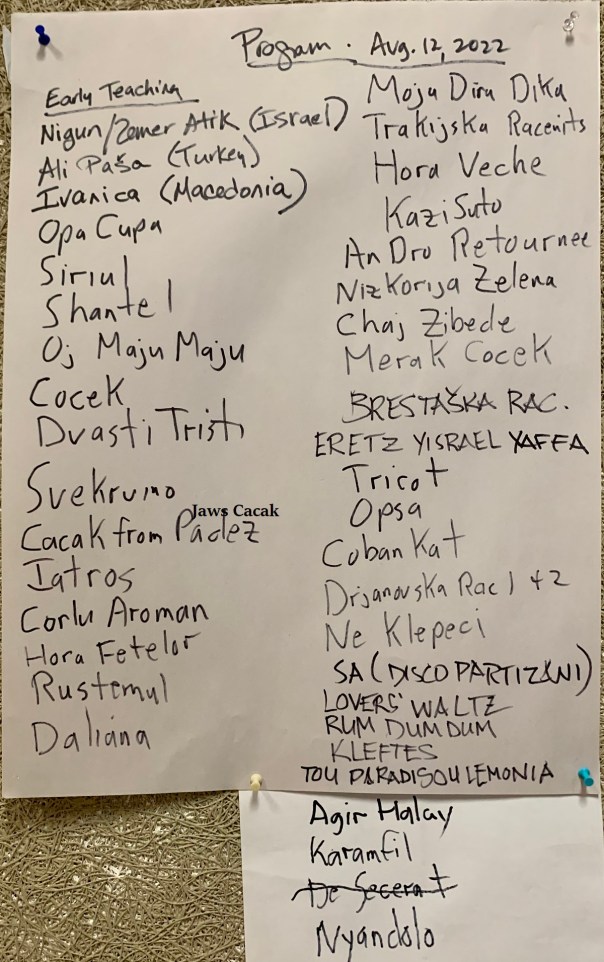 Program. Aug. 12, 2022
Early Teaching
Nigun/Zemer Atik (Israel)
Ali Paša (Turkey)
Ivanica (Macedonia)
Opa Cupa
Siriul
Shantel
Oj Maju Maju
Cocek
Dvasti Tristi
Svekrvino
Jaws Cacak
Cacak from Padez
Iatros
Corlu Aroman
Hora Fetelor
Rustemul
Daliana
Moju Diru Dika
Trakijska Racenits
Hora Veche
Kazi Suto
An Dro Retournee
Nizkorija Zelena
Chaj Zibede
Merak Cocek
BRESTAŠKA RAC.
ERETZ YISRAEL YAFFA
Tricot
Opsa
Coban Kat
Drjanovska Rac 1 + 2
Ne Klepeci
SA (DISCO PARTIZANI)
LOVERS' WALTZ
RUM DUM DUM
KLEFTES
TOU PARADISOU LEMONIA
Agir Halay
Karamfil
De Secerat
Nyandolo